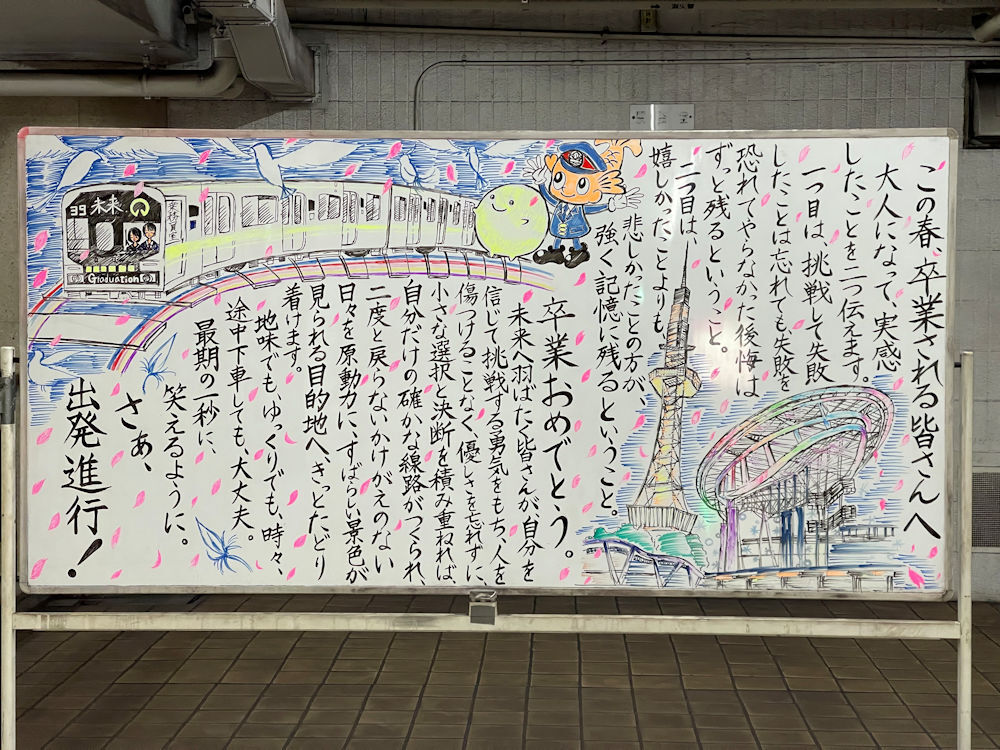 この春、卒業される皆さんへ
大人になって、実感
したことを二つ伝えます。
一つ目は、挑戦して失敗
したことは忘れても失敗を
恐れてやらなかった後悔は
ずっと残るということ。
二つ目は、
嬉しかったことよりも
悲しかったことの方が、
強く記憶に残るということ。
卒業おめでとう。
未来へ羽ばたく皆さんが、自分を
信じて挑戦する勇気をもち、人を
傷つけることなく、優しさを忘れずに、
小さな選択と決断を積み重ねれば、
自分だけの確かな線路がつくられ、
二度と戻らないかけがえのない
日々を原動力に、すばらしい景色が
見られる目的地へ、きっとたどり
着けます。
地味でも、ゆっくりでも、時々、
途中下車しても、大丈夫。
最期の一秒に、
笑えるように。
さぁ、
出発進行!
39 未来
Graduation